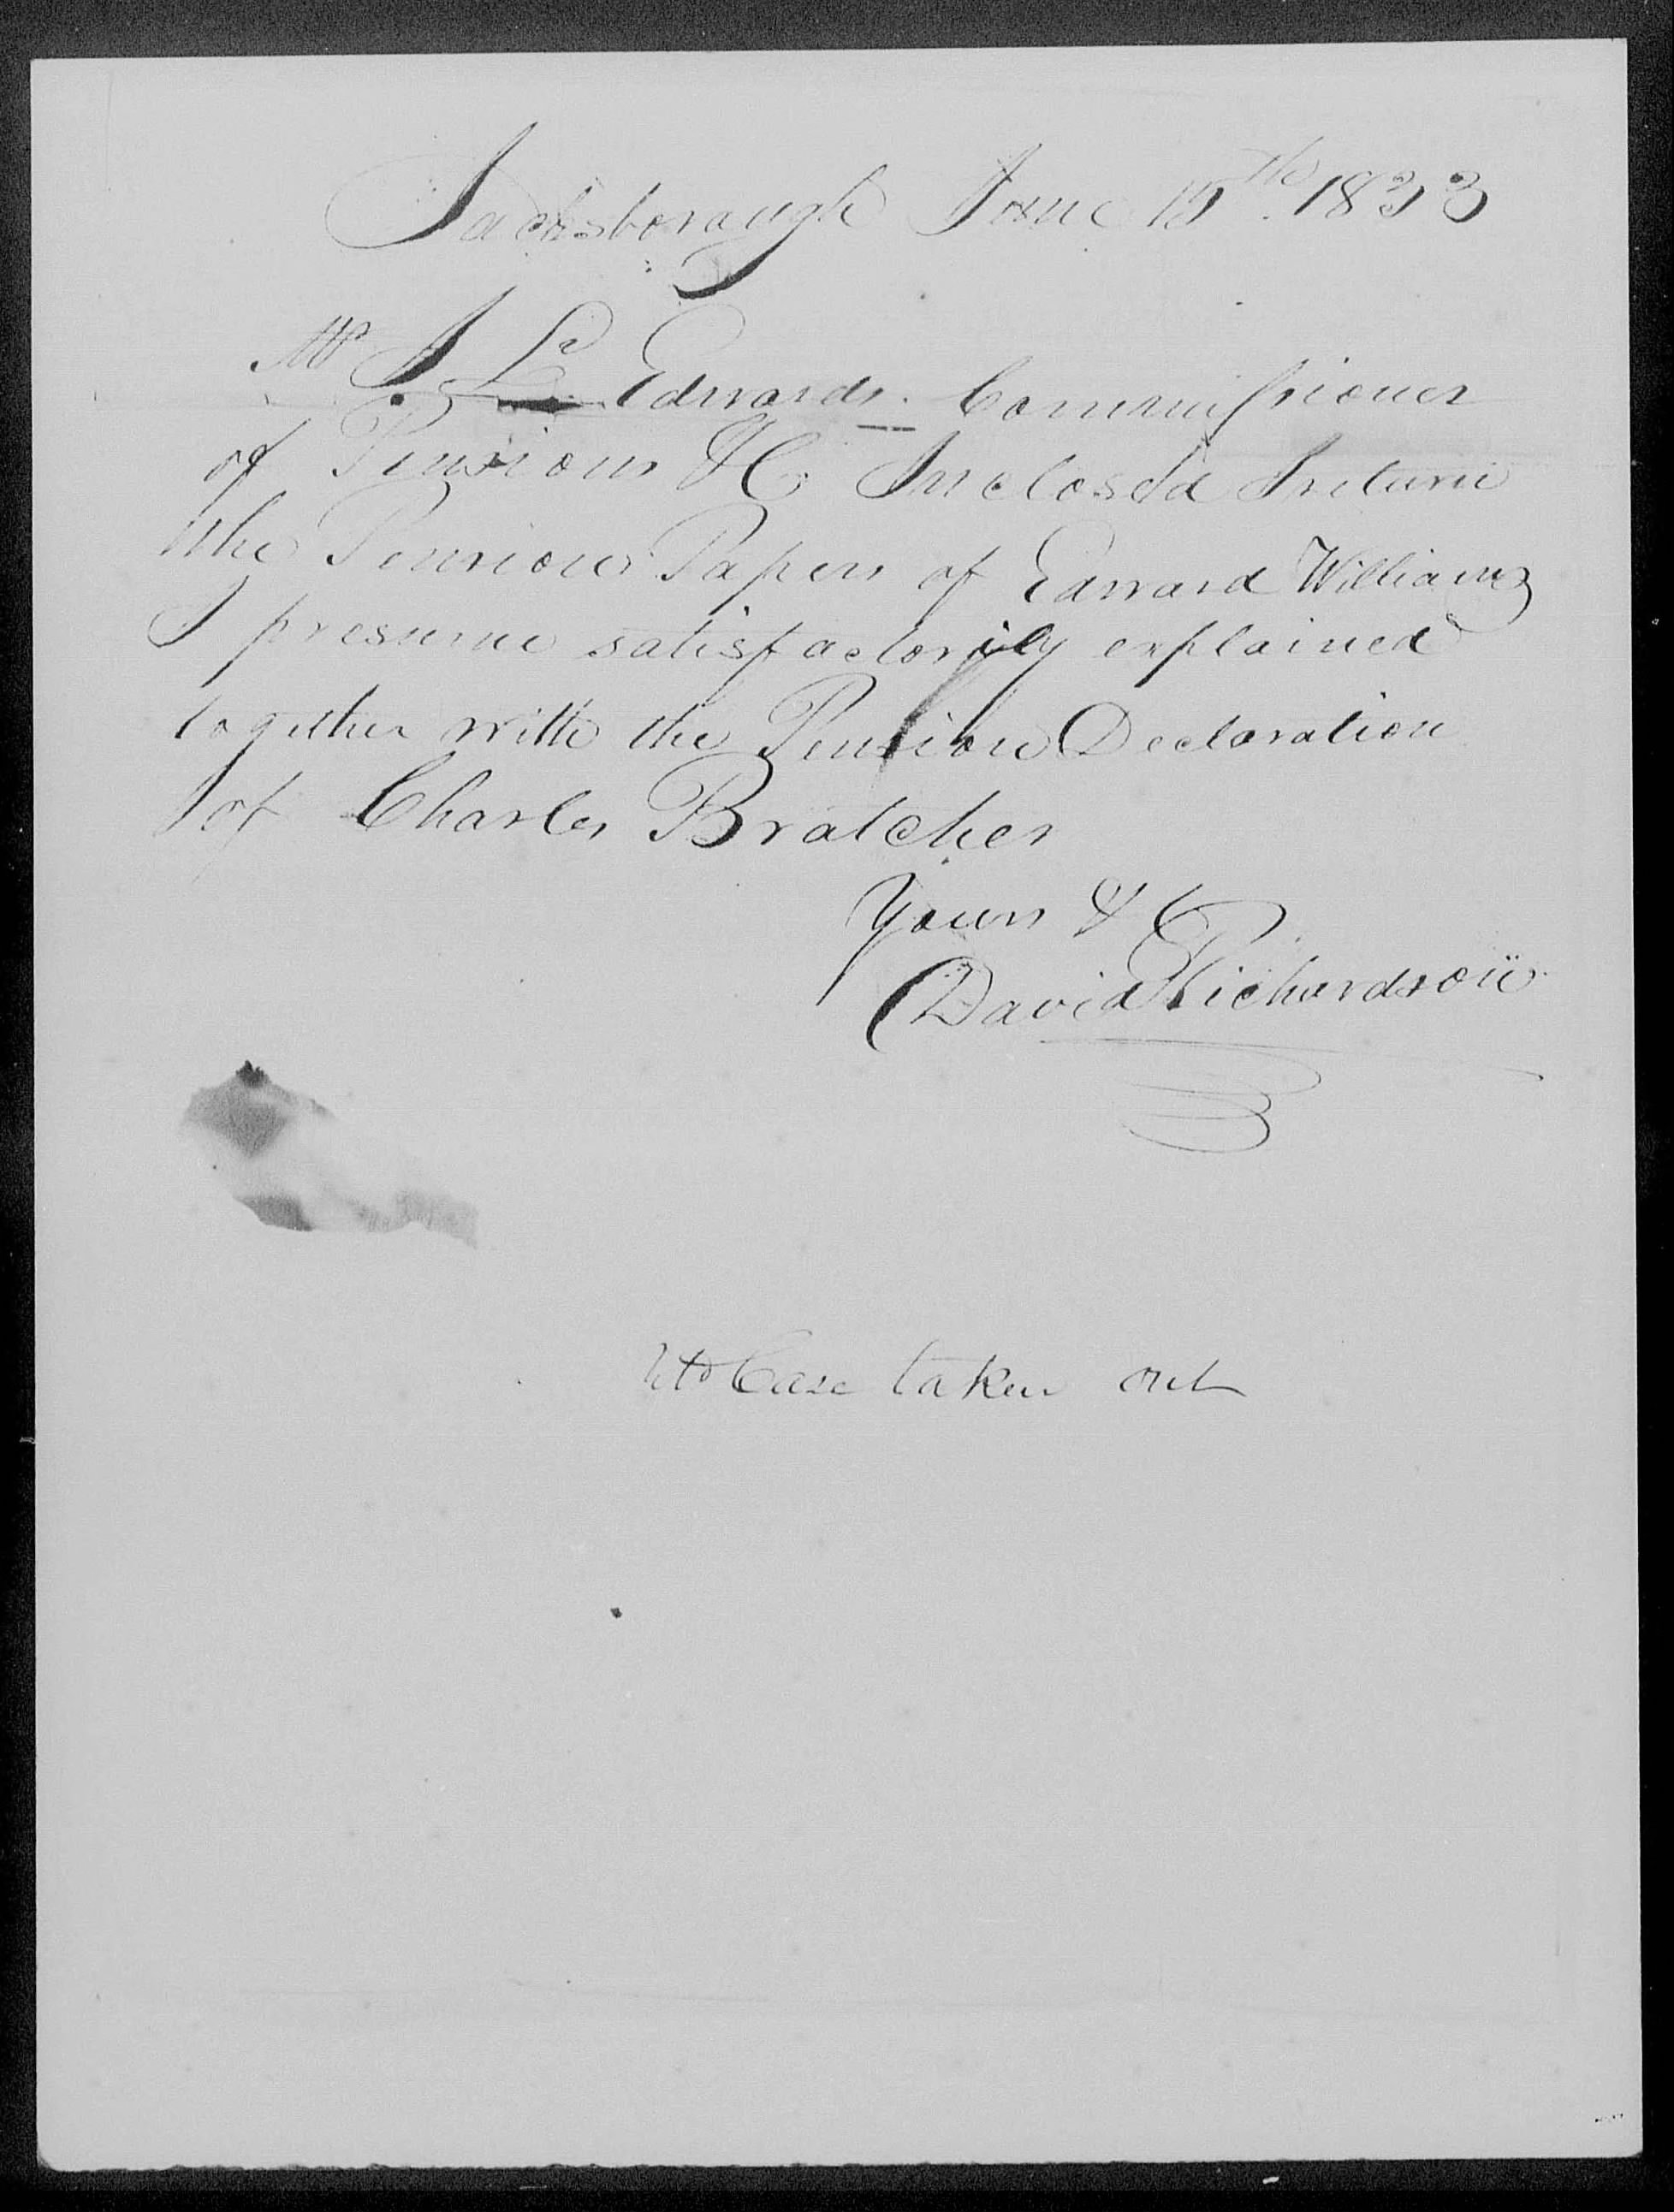 Jacksborough June 15th 1833
Mr J L Edwards. Commissioner
of Pensions &C Inclosed I return
the Pension Papers of Edward Williams
I presume satisfactorily explained
together with the Pension Declaration
of Charles Bratcher
Yours &C
David Richardson
Case taken out